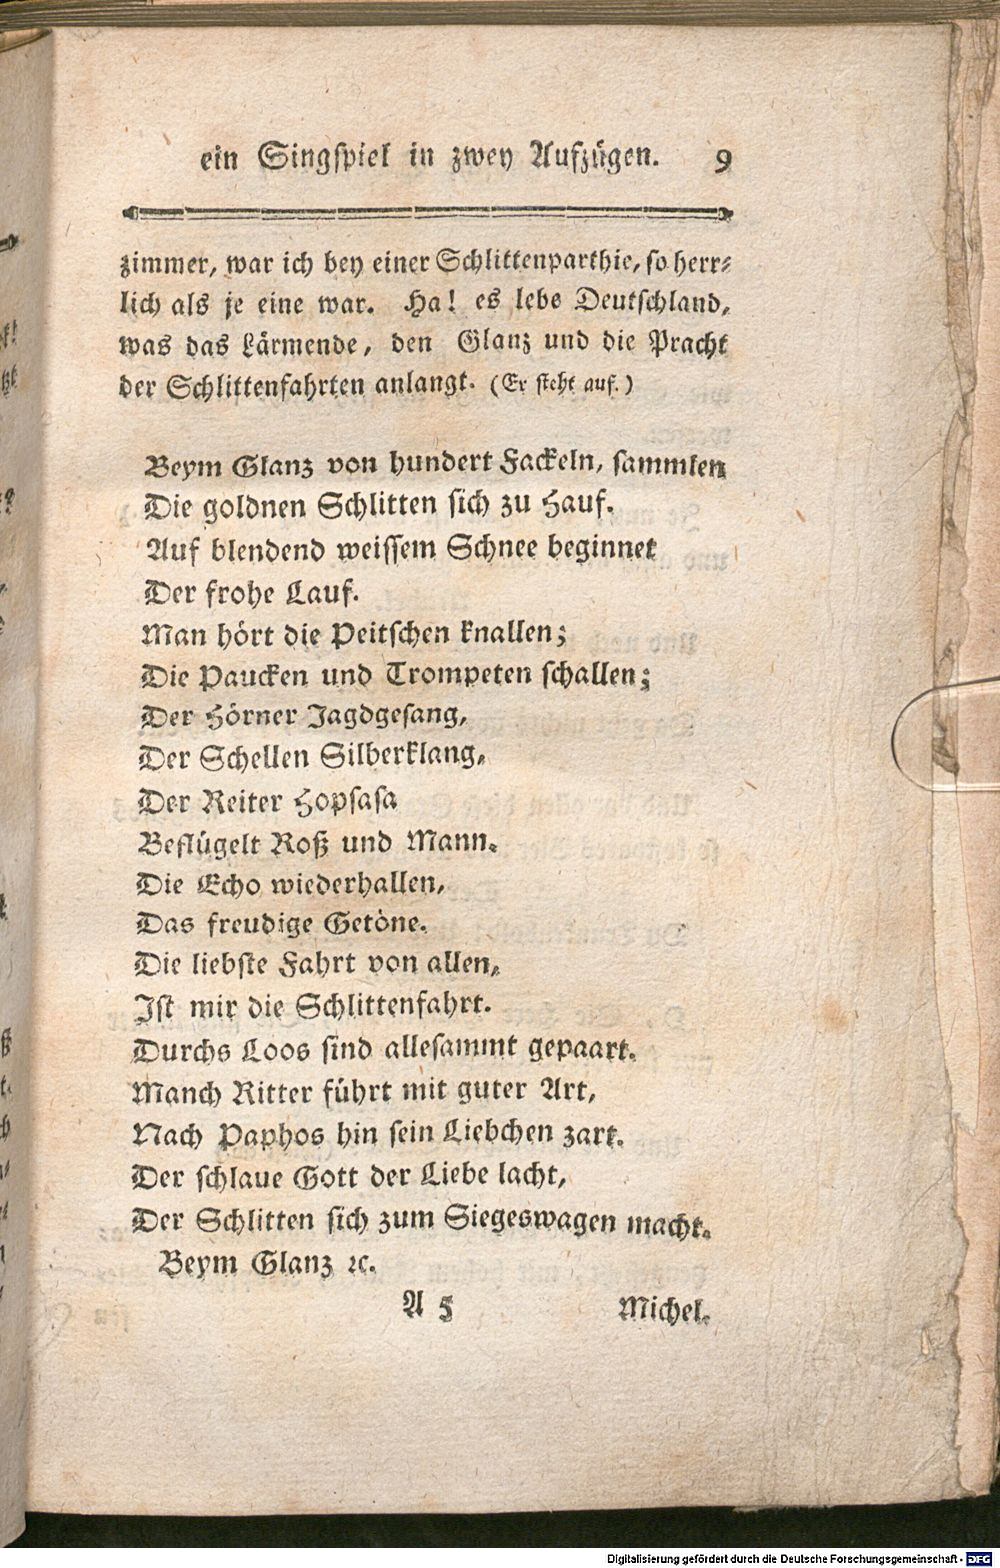 ein Singspiel in zwey Aufzügen. 9
zimmer, war ich bey einer Schlittenparthie, so herr-
lich als je eine war. Ha! es lebe Deutschland,
was das Lärmende, den Glanz und die Pracht
der Schlittenfahrten anlangt. (Er steht auf.)
Beym Glanz von hundert Fackeln, sammlen
Die goldnen Schlitten sich zu Hauf.
Auf blendend weissem Schnee beginnet
Der frohe Lauf.
Man hört die Peitschen knallen;
Die Paucken und Trompeten schallen;
Der Hörner Jagdgesang,
Der Schellen Silberklang,
Der Reiter Hopsasa
Beflügelt Roß und Mann.
Die Echo wiederhallen,
Das freudige Getöne.
Die liebste Fahrt von allen,
Ist mir die Schlittenfahrt.
Durchs Loos sind allesammt gepaart.
Manch Ritter führt mit guter Art,
Nach Paphos hin sein Liebchen zart.
Der schlaue Gott der Liebe lacht,
Der Schlitten sich zum Siegeswagen macht.
Beym Glanz ꝛc.
A 5 Michel.
Digitalisierung gefördert durch die Deutsche Forschungsgemeinschaft - DFG